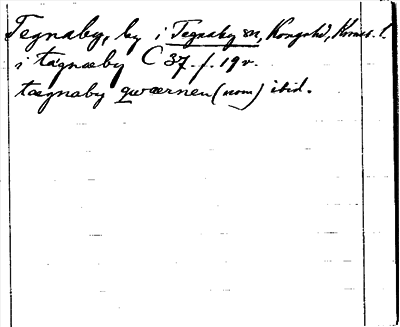 Tegnaby, by i Tegnaby sn, Konga hd, Kronob. l.
i tagnæby C 37. f. 19 v.
tægnaby qwærnen (nom) ibid.